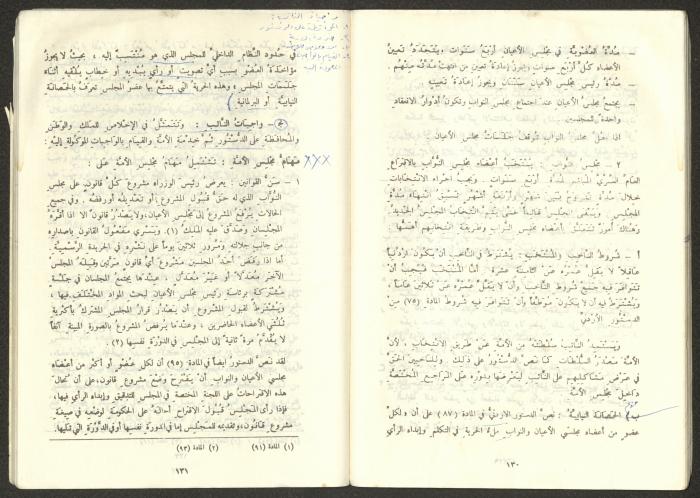 ــ مدة العضوية في مجلس الأعيان أربع سنوات، ويتجدد تعيين
الأعضاء كل أربع سنوات ويجوز إعادة تعيين من انتهت مدته منهم.
ــ مدة رئيس مجلس الأعيان سنتان ويجوز إعادة تعيينه
ــ يجتمع مجلس الأعيان عند اجتماع مجلس النواب وتكون أدوار الانعقاد
واحدة للمجلسين
اذا حل مجلس النواب توقف جلسات مجلس الأعيان
٢ ــ مجلس النواب : ينتخب أعضاء مجلس النواب بالاقتراع
العام السري المباشر لمدة أربع سنوات. ويجب اجراء الانتخابات
خلال مدة تتراوح بين شهر وأربعة أشهر تسبق انتهاء مدة
المجلس. ويبقى المجلس قائما حتى يتم انتخاب المجلس الجديد.
وهناك أمور تتعلق أعضاء مجلس النواب وطريقة انتخابهم أهمها :
أ ــ شروط النائب والمنتخب : يشترط في النائب أن يكون اردنيا
عاقلا لا يقل عمره عن الثامنة عشرة. أما المنتخب فيجب أن
تتوافر فيه جميع شروط النائب وأن لا يقل عمره عن ثلاثين عاما،
ويشترط فيه أن لا يكون موظفا وأن تتوافر فيه شروط المادة (٧٥) من
الدستور الأردني
ويستمد النائب سلطته من الأمة عن طريق الانتخاب، لأن
الأمة مصدر السلطات كما نص الدستور على ذلك. وللناخبين الحق
في عرض مشاكلهم على النائب ليعرضها بدوره على المراجع المختصة
داخل مجلس الأمة
ب ــ الحصانة النيابية : نص الدستور الاردني في المادة (٨٧) على أن « لكل
عضو من أعضاء مجلسي الأعيان والنواب ملء الحرية في التكلم وإبداء الرأي
١٣٠
في حدود النظام الداخلي للمجلس الذي هو منتسب إليه، بحيث لا يجوز
مؤاخذة العضو بسبب أي تصويت أو رأي يبديه أو خطاب يلقيه أثناء
جلسات المجلس، وهذه الحرية التي يتمتع بها عضو المجلس تعرف بالحصانة
النيابية أو البرلمانية
ج ــ واجبات النائب : وتتمثل في الإخلاص للملك والوطن
والمحافظة على الدستور ثم خدمة الأمة والقيام بالواجبات الموكولة إليه :
××× مهام مجلس الأمة : تشتمل مهام مجلس الأمة على :
١ ــ سن القوانين : يعرض رئيس الوزراء مشروع كل قانون على مجلس
النواب الذي له حق قبول المشروع أو تعديله أو رفضه. وفي جميع
الحالات يرفع المشروع إلى مجلس الأعيان، ولا يصدر قانون الا اذا أقره
المجلسان وصدق عليه الملك (١). ويسري مفعول القانون باصداره
من جانب جلالته ومرور ثلاثين يوما على نشره في الجريدة الرسمية.
أما اذا رفض أحد المجلسين مشروع أي قانون مرتين وقبله المجلس
الآخر معدلا أو غير معدل، عندها يجتمع المجلسان في جلسة
مشتركة برئاسة رئيس مجلس الأعيان لبحث المواد المختلف فيها،
ويشترط لقبول المشروع أن يصدر قرار المجلس المشترك بأكثرية
ثلثي الأعضاء الحاضرين، وعندما يرفض المشروع بالصورة المبينة آنفا
لا يقدم مرة ثانية إلى المجلس في الدورة نفسها (٢).
لقد نص الدستور ايضا في المادة (٩٥) أن لكل عضو أو أكثر من أعضاء
مجلسي الأعيان والنواب أن يقترح وضع مشروع قانون، على أن تحال
هذه الاقتراحات على اللجنة المختصة في المجلس للتدقيق وإبداء الرأي فيها،
فإذا رأى المجلس قبول الاقتراح أحاله على الحكومة لوضعه في صيغة
مشروع قانون، وتقديمه للمجلس إما في الدورة نفسها أو في الدورة التي تليها.
(١) المادة (٩١) (٢) المادة (٩٣)
١٣١